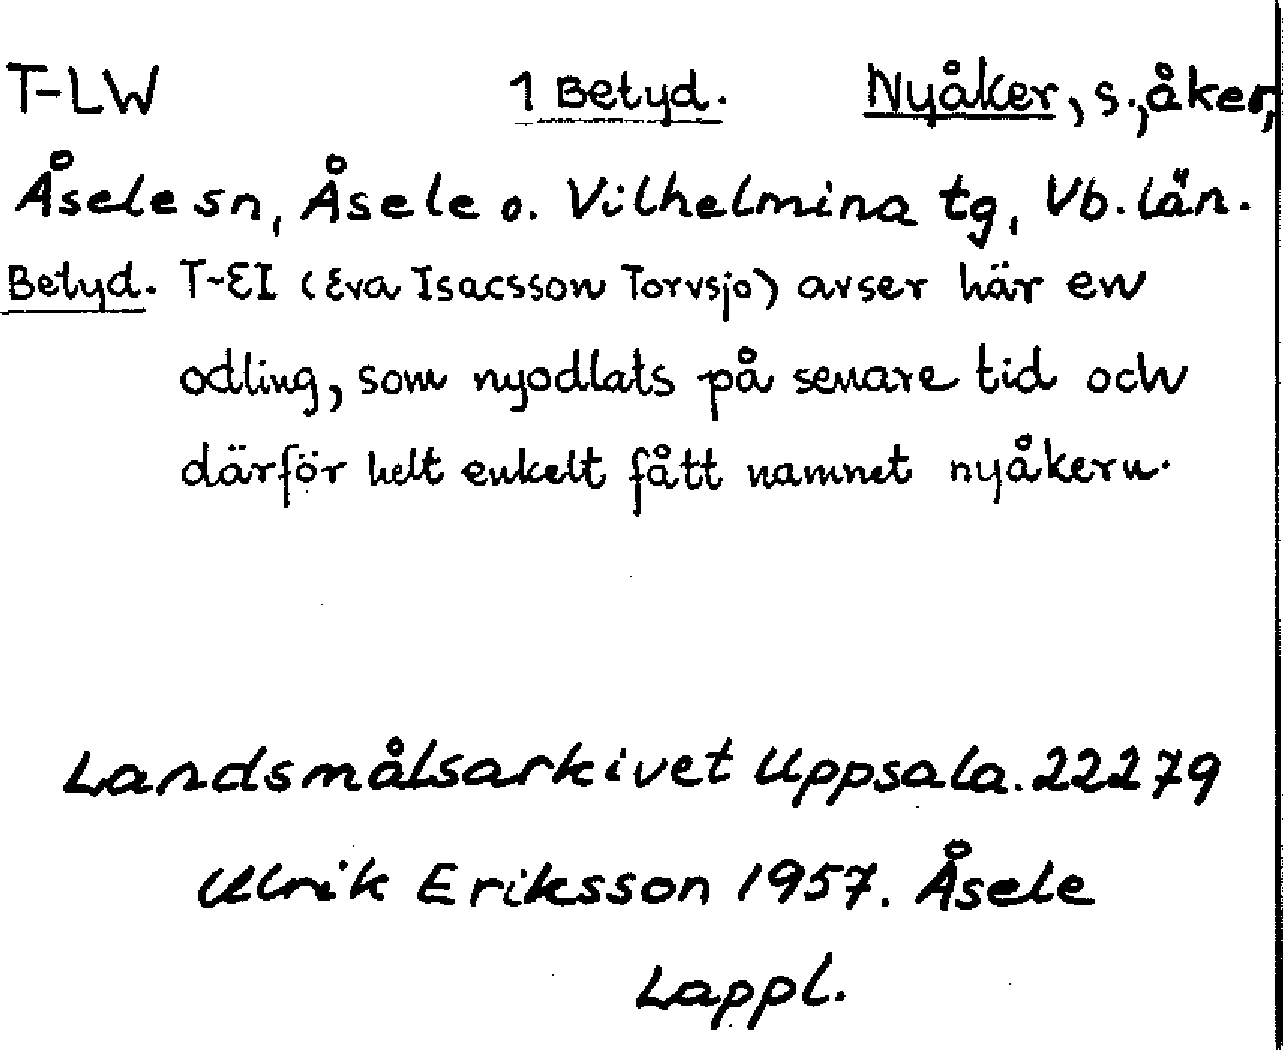 T-LW 1 Betyd. Nyåker, s., åker,
Åsele sn, Åsele o. Vilhelmina tg, Vb. län.
Betyd. T-EI (Eva Isacsson Torvsjö) avser här en
odling, som nyodlats på senare tid och
därför helt enkelt fått namnet nyåkern.
Landsmålsarkivet Uppsala. 22279
Ulrik Eriksson 1957. Åsele
Lappl.